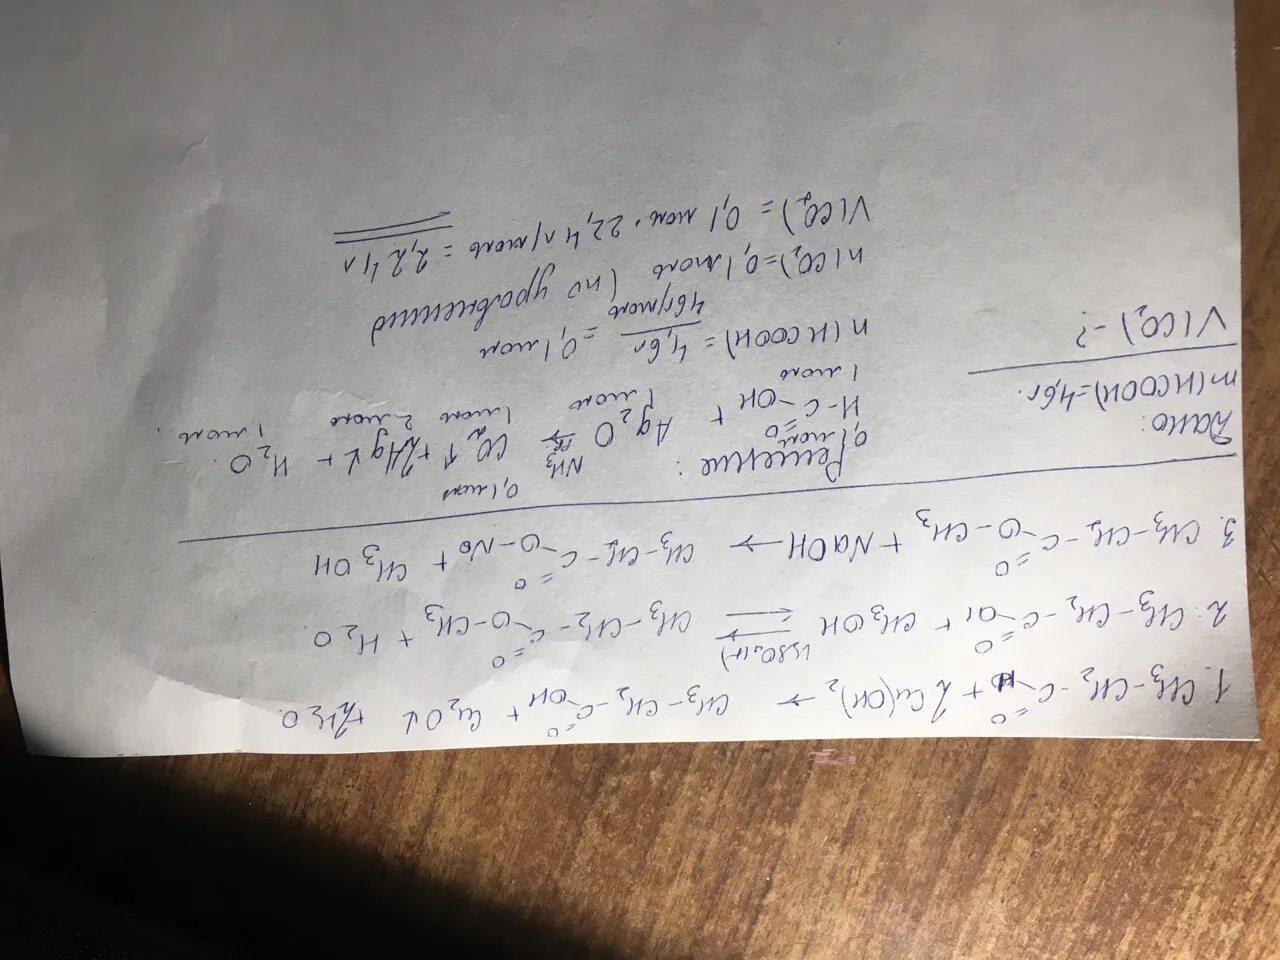 1. CH₃-CH₂-C(=O)-H + 2Cu(OH)₂ → CH₃-CH₂-C(=O)-OH + Cu₂O↓ + 2H₂O.
2. CH₃-CH₂-C(=O)-OH + CH₃OH ⇌ H₂SO₄(к) CH₃-CH₂-C(=O)-O-CH₃ + H₂O.
3. CH₃-CH₂-C(=O)-O-CH₃ + NaOH → CH₃-CH₂-C(=O)-O-Na + CH₃OH
Дано:
m(HCOOH)=4,6г.
V(CO₂)-?
Решение:
0,1 моль 0,1 моль
H-C(=O)-OH + Ag₂O → NH₃ р-р. CO₂↑ + 2Ag↓ + H₂O.
1 моль 1 моль 1 моль 2 моль 1 моль.
n(HCOOH) = 4,6г / 46г/моль = 0,1 моль
n(CO₂)=0,1 моль (по уравнению
V(CO₂) = 0,1 мол · 22,4 л/моль = 2,24 л